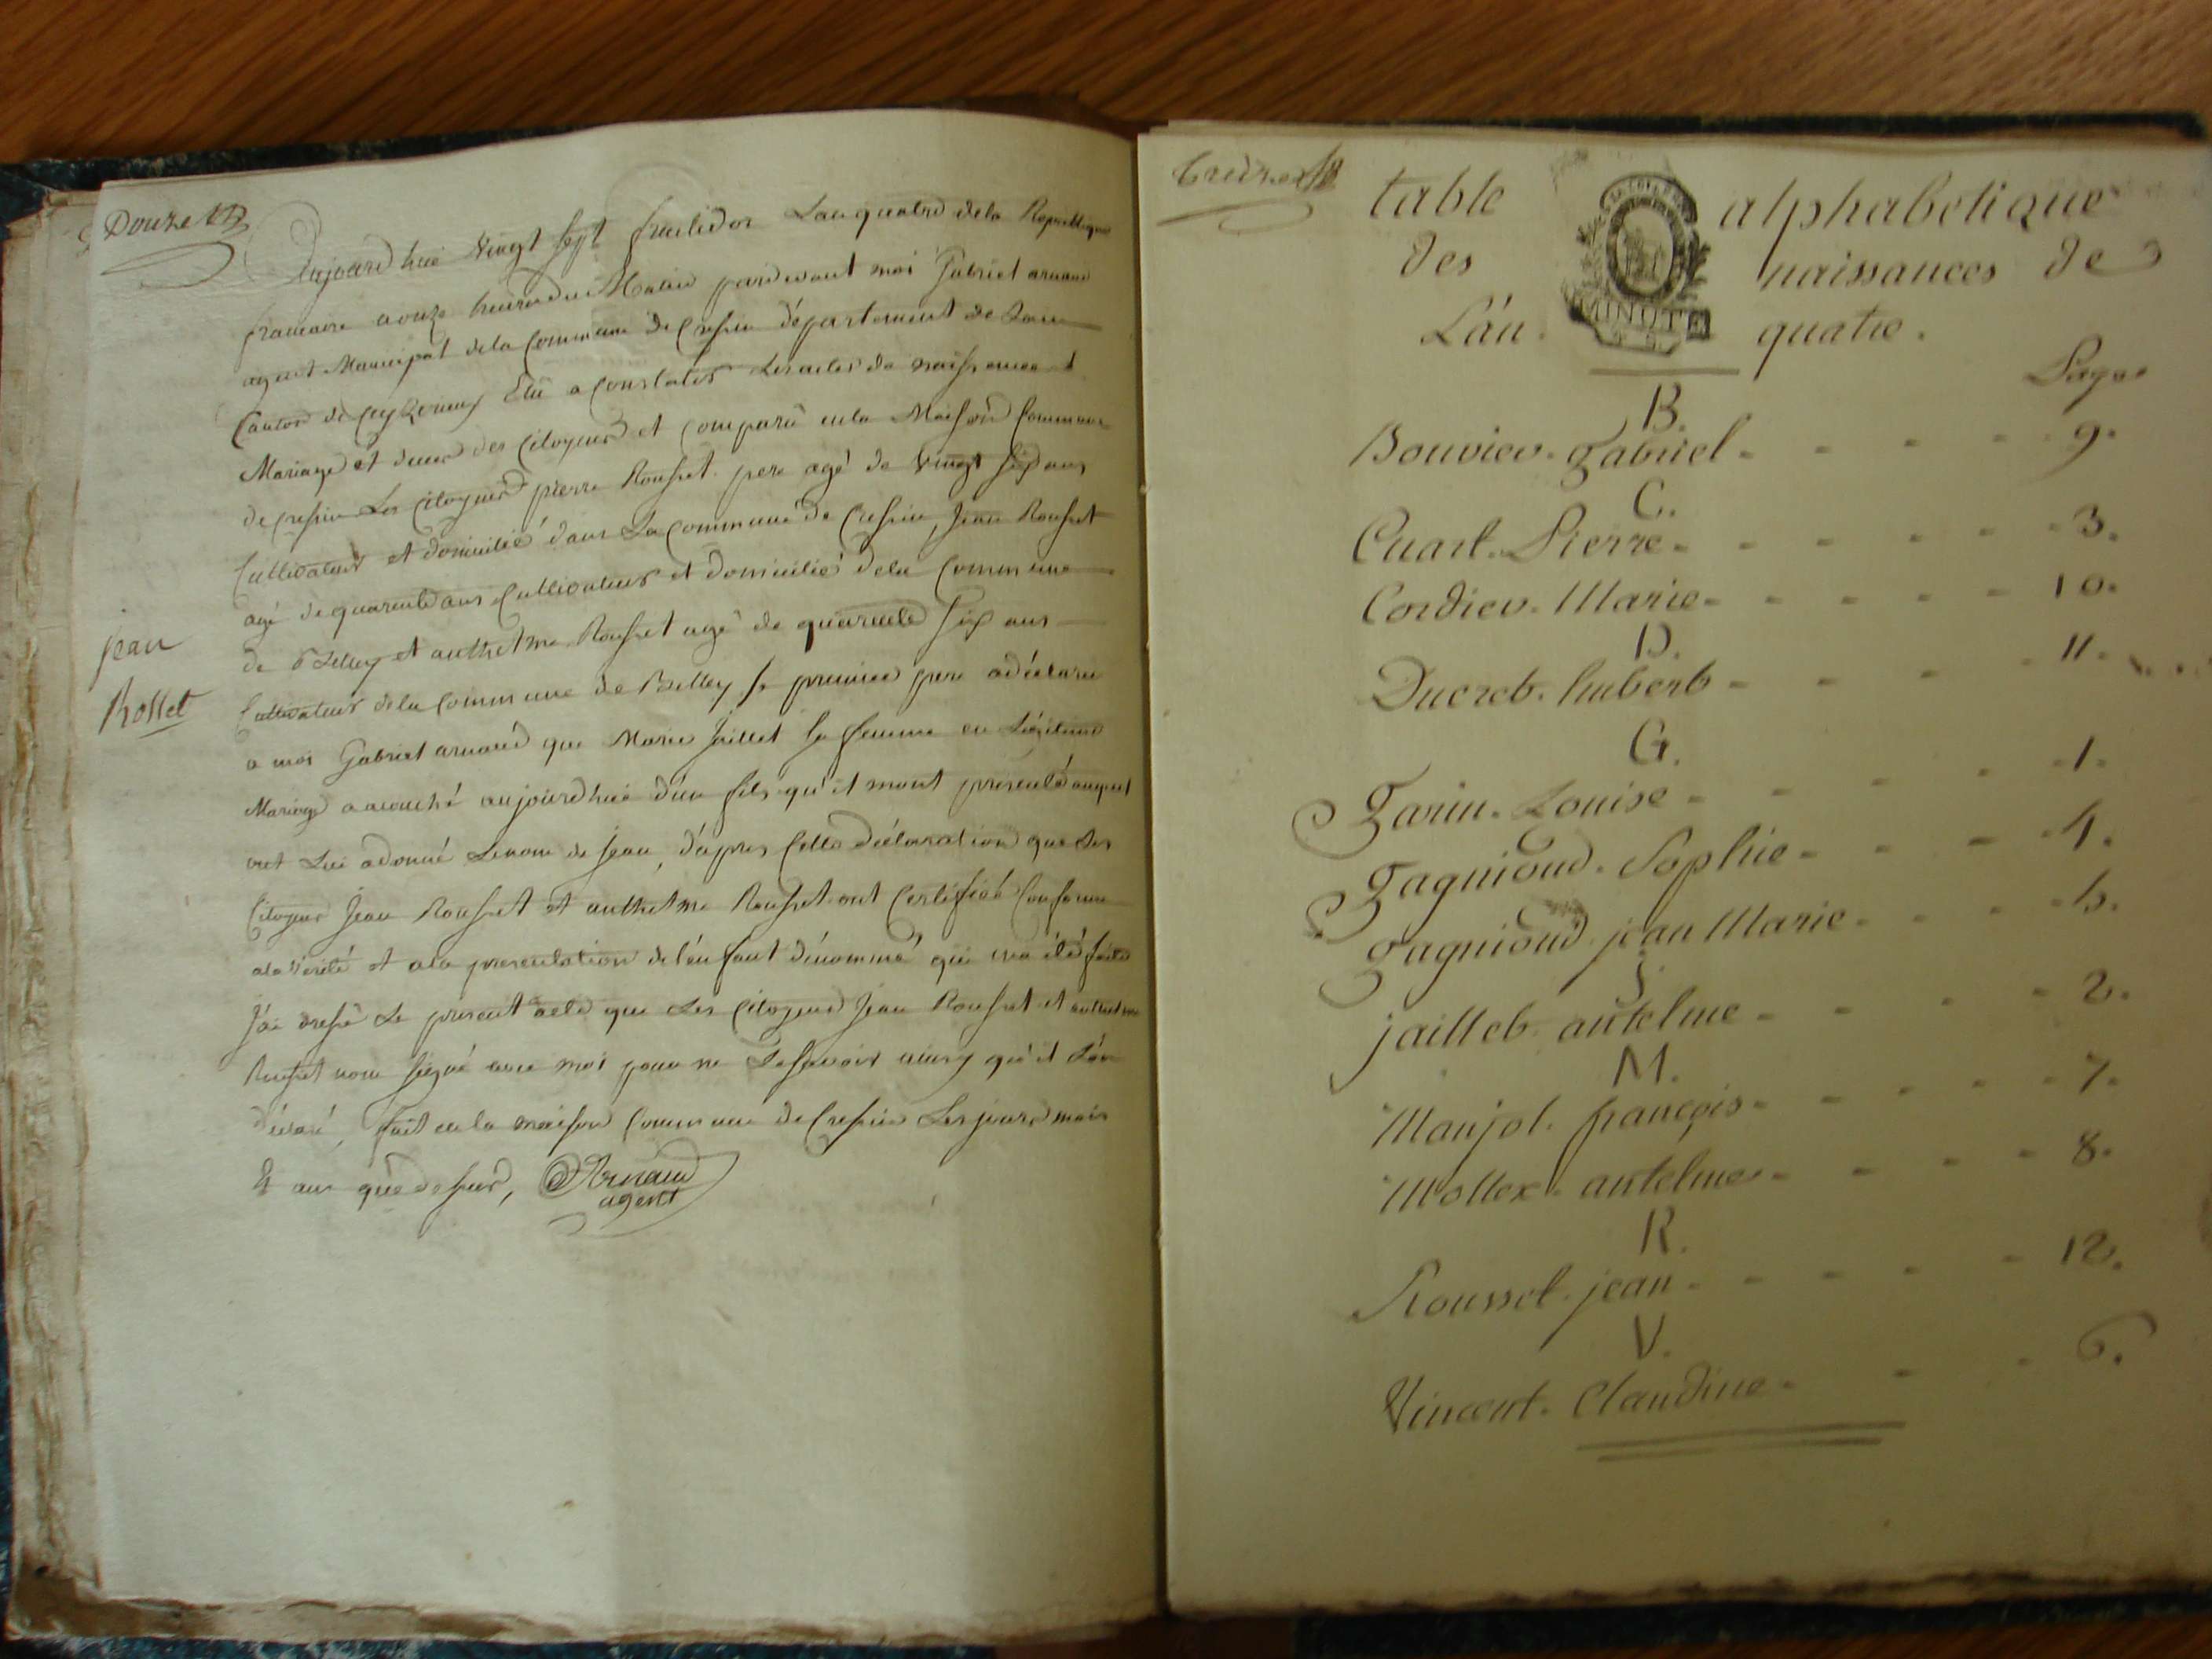 Douze
Aujourdhui vingt sept fructidor Lan quatre dela Republique
francaise a onze heures du Matin pardevant moi Gabriel arnaud
agent Municipal dela Commune de Cressieu département de Lain
Canton de Ceyzerieux Elu a Constater Les actes de naissance
Mariage et deces des Citoyens et comparu en la Maison Commune
de Cressieu Les Citoyens pierre Rousset pere agé de vingt six ans
Cultivateur et domicilié dans La commune de Cressieu, Jean Rousset
agé de quarente ans Cultivateur et domicilié dela Commune
de Belley et anthelme Rousset agé de quarente six ans
Cultivateur dela Commune de Belley le premier pere a déclaré
jean
Rosset
a moi Gabriel arnaud que Marie Jaillet sa femme en Légitime
Mariage a accouché aujourdhui d'un fils qu'il mont presenté auquel
ont Lui a donné Le nom de Jean, d'apres cette déclaration que Les
Citoyens Jean Rousset et anthelme Rousset ont certifié Conforme
ala verité et ala presentation de l'enfant dénommé qui ma été faite
J'ai dressé Le present acte que Les Citoyens Jean Rousset et anthelme
Rousset nont signé avec moi pour ne Le savoir ainsy qu'il L'ont
déclaré, fait en la maison Commune de Cressieu Les jours mois
& ans que dessus, Arnaud
agent
treize
table alphabetique
des naissances de
L'an quatre.
MINUTE
Page
B.
Bouvier. gabriel - - - - 9.
C.
Cuart. Pierre - - - - - 3.
Cordier. Marie - - - - - 10.
D.
Ducret. hubert - - - - 11.
G.
garin. Louise - - - - 1.
gagnioud. Sophie - - - - 4.
gagnioud. jean Marie - - - - 5.
J.
jaillet antelme - - - - 2.
M.
Manjot. françois - - - - - 7.
Mollex. antelme - - - - 8.
R.
Rousset. jean - - - - - 12.
V.
Vincent. Claudine - - - 6.